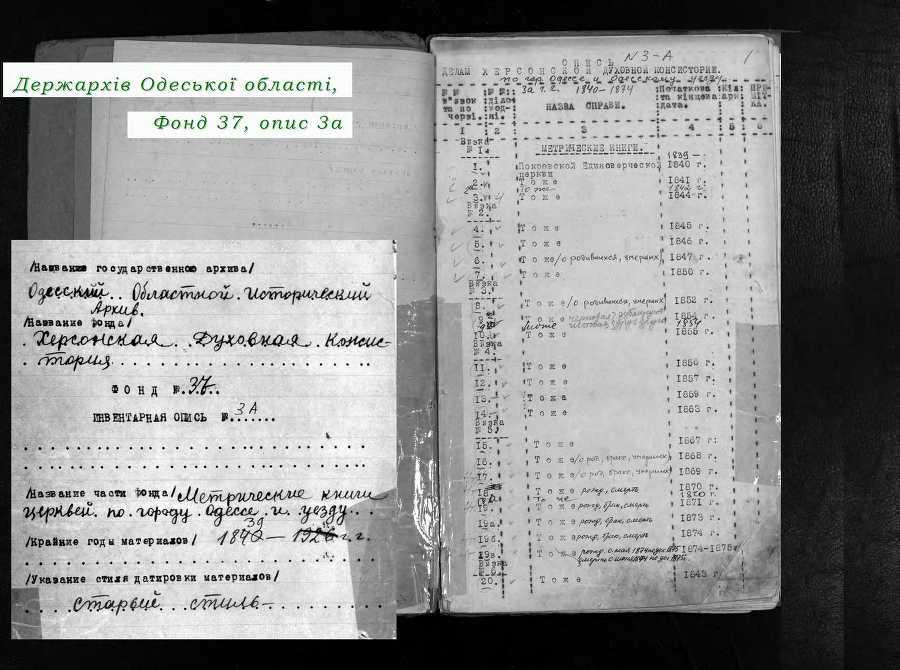 Держархів Одеської області,
Фонд 37, опис 3а
/Название государственною архива/
Одесский Областной Исторический
Архив.
/Название фонда/
Херсонская Духовная Консис-
тория
ФОНД №.37.
ИНВЕНТАРНАЯ ОПИСЬ №.3А
/Название части фонда/ Метрические книги
церквей по городу Одессе и уезду
39
/Крайние годы материалов/ 1840 — 1926 г.г.
/Указание стиля датировки материалов/
старый стиль
ОПИСЬ N 3-А 1
ДЕЛАМ ХЕРСОНСКОЙ ДУХОВНОЙ КОНСИСТОРИИ.
по гор. Одессе и Одесскому уезду
За г.г. 1840-1874
НАЗВА СПРАВИ.
Початкова та кінцева дата.
1 2 3 4 5 6
Вязка № 1.
МЕТРИЧЕСКИЕ КНИГИ.
1839 -
1. Покровской Единоверческой церкви 1840 г.
2. Тоже 1841 г.
То же 1842 г.
3. Тоже 1844 г.
Вязка № 2.
4. Тоже 1845 г.
5. Тоже 1846 г.
6. Тоже /о родившихся, умерших/ 1847 г.
7. Тоже 1850 г.
Вязка № 3.
8. Тоже /о родивших, умерших/ 1852 г.
9. Тоже 1854 г.
Тоже 1854
10. Тоже 1855 г.
Вязка № 4.
11. Тоже 1856 г.
12. Тоже 1857 г.
13. Тоже 1859 г.
14. Тоже 1863 г.
Вязка № 5.
15. Тоже 1867 г.
16. Тоже /о род, браке, умерших/ 1868 г.
17. Тоже /о род, браке, умерших/ 1869 г.
18. Тоже рожд, смерть 1870 г.
19. Тоже рожд, брак, смерть 1871 г.
19а. Тоже рожд, брак, смерть 1873 г.
19б. Тоже рожд, брак, смерть 1874 г.
19в. Тоже рожд. с мая 1874 по дек 1875 1874-1875 г.
Вязка
20. Тоже 1843 г.